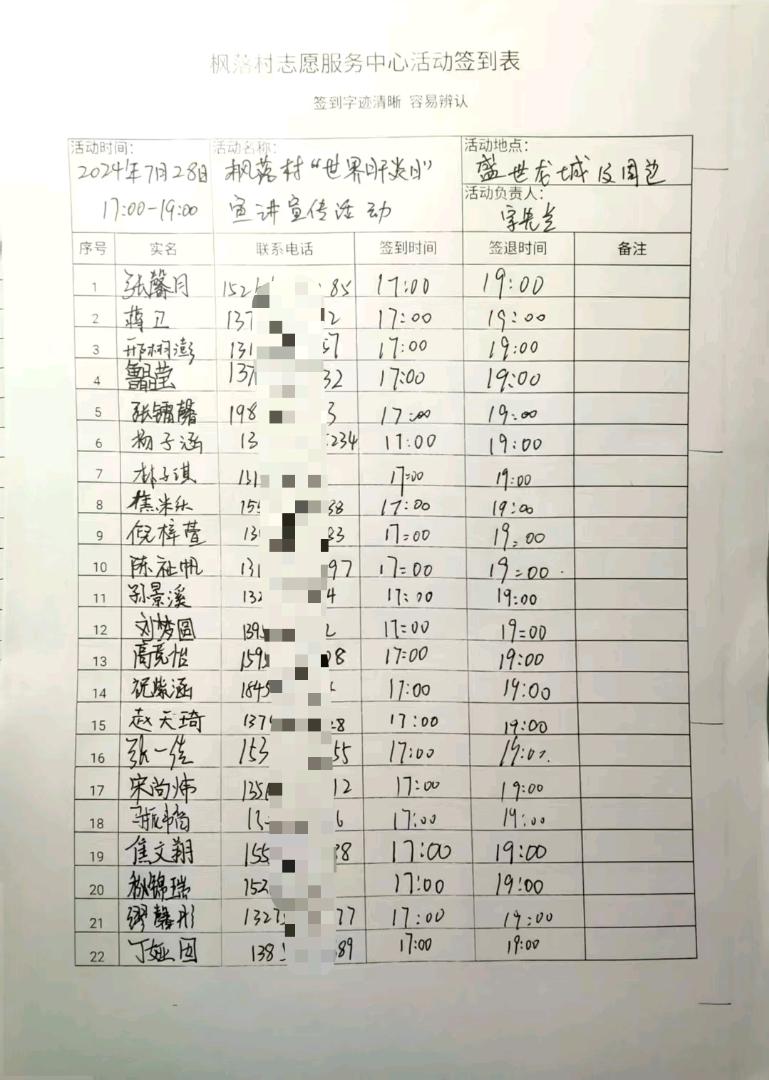 枫落村志愿服务中心活动签到表
签到字迹清晰 容易辨认
活动时间： 活动名称： 活动地点：
2024年7月28日 枫落村“世界肝炎日” 盛世龙城及周边
活动负责人：
17:00-19:00 宣讲宣传活动
序号 实名 联系电话 签到时间 签退时间 备注
1 张馨月 152 85 17:00 19:00
2 蒋卫 137 2 17:00 19:00
3 邢树澎 131 57 17:00 19:00
4 鲁昱莹 137 32 17:00 19:00
5 张镭馨 198 3 17:00 19:00
6 杨子涵 13 234 17:00 19:00
7 林子琪 131 17:00 19:00
8 焦米乐 155 38 17:00 19:00
9 倪梓萱 13 33 17:00 19:00
10 陈祉帆 131 97 17:00 19:00
11 孙景溪 132 4 17:00 19:00
12 刘梦圆 139 2 17:00 19:00
13 高竞怡 159 08 17:00 19:00
14 祝紫涵 1845 17:00 19:00
15 赵天琦 137 28 17:00 19:00
16 张一佳 153 55 17:00 19:00
17 宋尚炜 135 12 17:00 19:00
18 13 6 17:00 19:00
19 焦文翔 155 38 17:00 19:00
20 锦瑞 152 17:00 19:00
21 缪馨彤 1327 77 17:00 19:00
22 丁娅囡 138 89 17:00 19:00